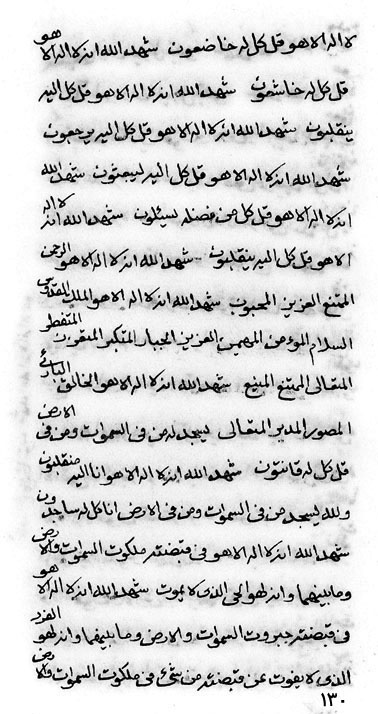 لا اله الا هو قل كل له خاضعون شهد الله انه لا اله الا هو
قل كل له خاشعون شهد الله انه لا اله الا هو قل كل اليه
ينقلبون شهد الله انه لا اله الا هو قل كل اليه يرجعون
شهد الله انه لا اله الا هو قل كل اليه ليبعثون شهد الله
انه لا اله الا هو قل كل من فضله يسئلون شهد الله انه لا اله
الا هو قل كل اليه ينقلبون شهد الله انه لا اله الا هو الرحمن
الممتنع العزيز المحبوب شهد الله انه لا اله الا هو الملك القدوس
السلام المؤمن المهيمن العزيز الجبار المتكبر
المتعالى الممتنع المنيع شهد الله انه لا اله الا هو الخالق البارئ
المصور المدبر المتعالى ليسجد له من فى السموات ومن فى الارض
قل كل له قانتون شهد الله انه لا اله الا هو وانا اليه منقلبون
ولله يسجد من فى السموات ومن فى الارض انا كل له ساجدون
شهد الله انه لا اله الا هو فى قبضته ملكوت السموات والارض
وما بينهما وانه لهو الحى الذى لا يموت شهد الله انه لا اله الا هو
فى قبضته جبروت السموات والارض وما بينهما وانه لهو الفرد
الذى لا يفوت عن قبضته من شئ فى ملكوت السموات والارض
١٣٠